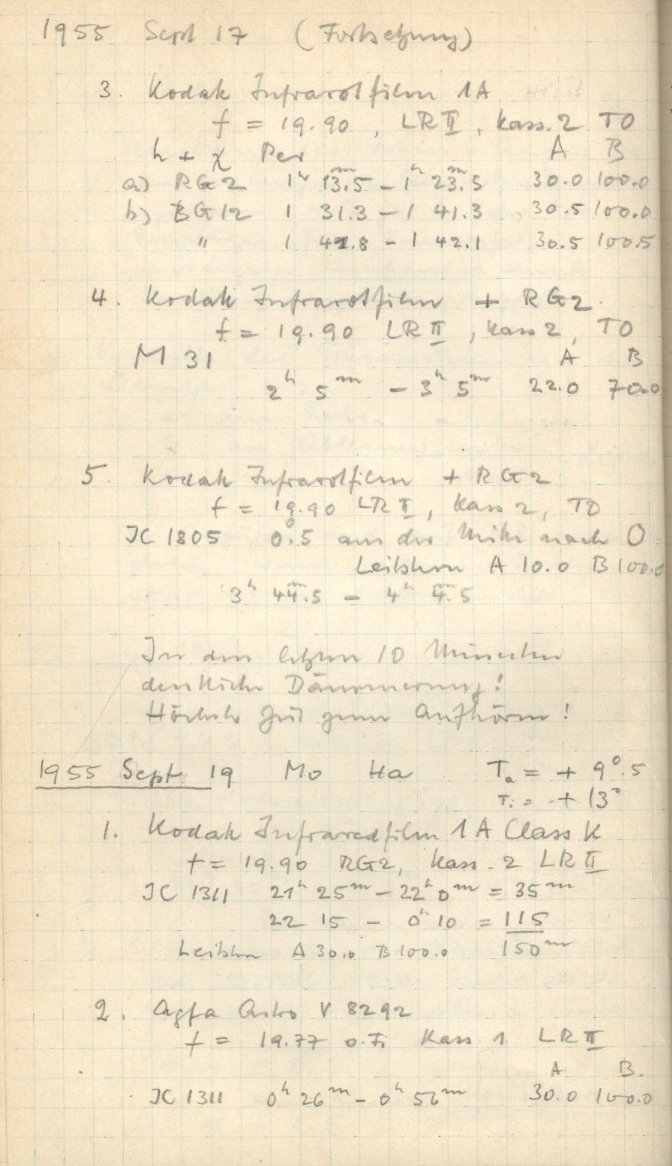 1955 Sept 17 (Fortsetzung)
3. Kodak Infrarotfilm 1A
f = 19.90, LR II, Kass. 2 TO
h + χ Per A B
a) RG2 1h 13m.5 - 1h 23m.5 30.0 100.0
b) BG12 1 31.3 - 1 41.3 30.5 100.0
" 1 41.8 - 1 42.1 30.5 100.5
4. Kodak Infrarotfilm + RG2
f = 19.90 LR II, Kass 2, TO
M 31 A B
2h 5m - 3h 5m 22.0 70.0
5. Kodak Infrarotfilm + RG2
f = 19.90 LR II, Kass 2, TO
IC 1805 0°.5 aus der Mitte nach O
Leitstern A 10.0 B 100.0
3h 44m.5 - 4h 4m.5
In den letzten 10 Minuten
deutliche Dämmerung!
Höchste Zeit zum Aufhören!
1955 Sept 19 Mo Ha Ta = + 9°.5
Ti = + 13°
1. Kodak Infraredfilm 1A Class K
f = 19.90 RG2, Kass. 2 LR II
IC 1311 21h 25m - 22h 0m = 35m
22 15 - 0h 10 = 115
Leitstn A 30.0 B 100.0 150m
2. Agfa Astro V 8292
f = 19.77 o.F. Kass 1 LR II
A B.
IC 1311 0h 26m - 0h 56m 30.0 100.0